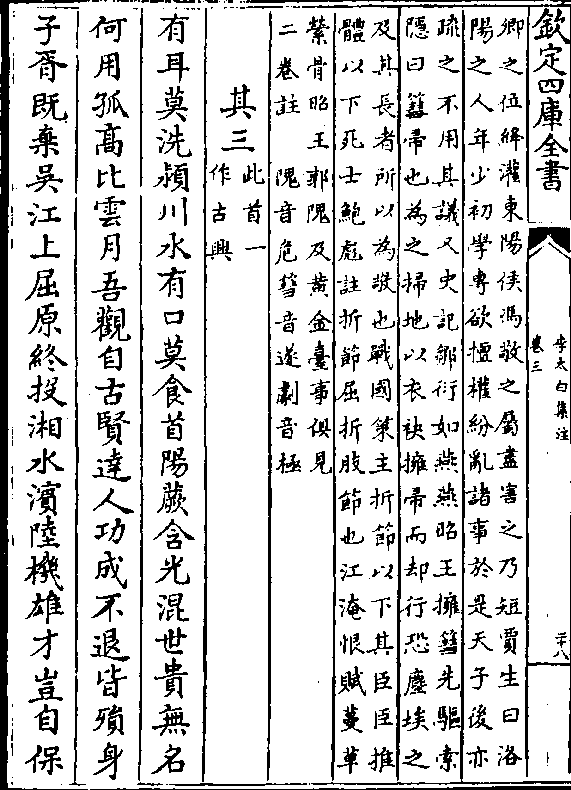 欽定四庫全書
李太白集注
卷三
二十八
卿之位絳灌東陽侯馮敬之屬盡害之乃短賈生曰洛
陽之人年少初學專欲擅權紛亂諸事於是天子後亦
疏之不用其議又史記鄒衍如燕燕昭王擁篲先驅索
隱曰篲帚也為之掃地以衣袂擁帚而却行恐塵埃之
及其長者所以為敬也戰國策主折節以下其臣臣推
體以下死士鮑彪註折節屈折肢節也江淹恨賦蔓草
縈骨昭王郭隗及黄金臺事俱見
二卷註 隗音危篲音遂劇音極
其三
此首一
作古興
有耳莫洗潁川水有口莫食首陽蕨含光混世貴無名
何用孤髙比雲月吾觀自古賢達人功成不退皆殞身
子胥既棄吳江上屈原終投湘水濱陸機雄才豈自保